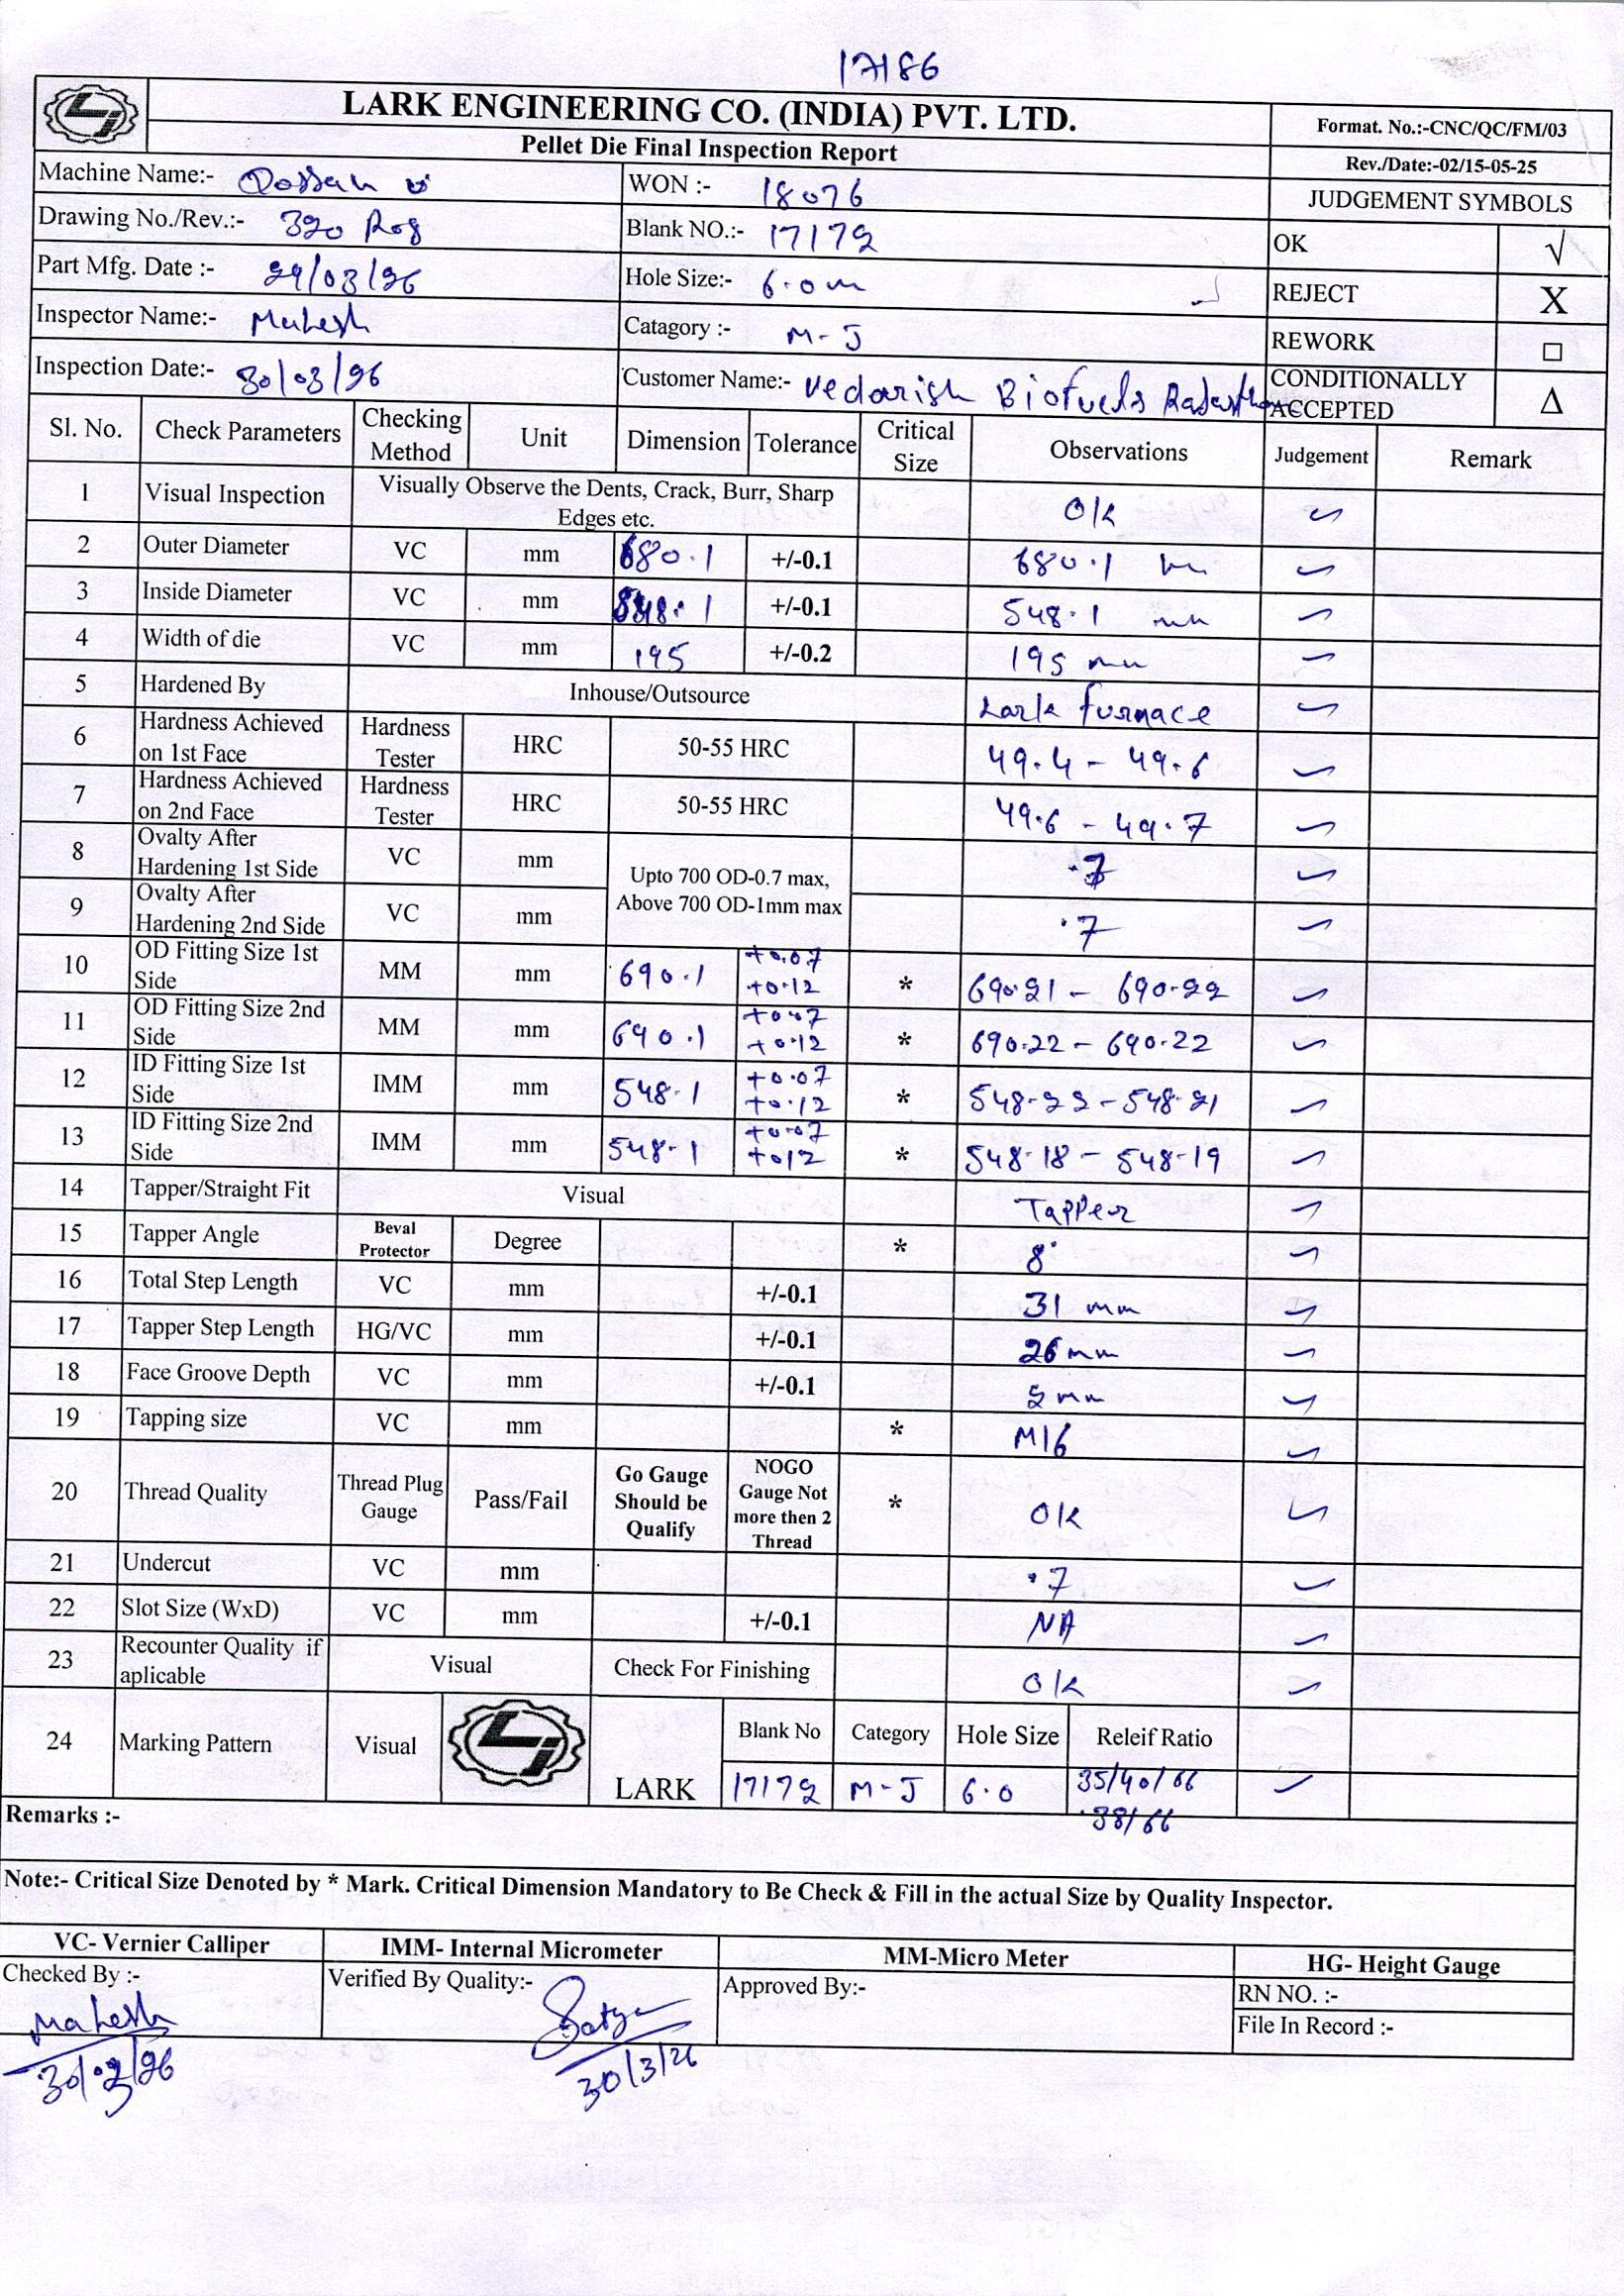 17186
LARK ENGINEERING CO. (INDIA) PVT. LTD.
Pellet Die Final Inspection Report
Format. No.:-CNC/QC/FM/03
Rev./Date:-02/15-05-25
Machine Name:-
WON :- 18076
JUDGEMENT SYMBOLS
Drawing No./Rev.:- 390
Blank NO.:- 17172
OK √
Part Mfg. Date :- 29/03/26
Hole Size:- 6.0 m
REJECT X
Inspector Name:- Mahesh
Catagory :- M-J
REWORK □
Inspection Date:- 30/03/26
Customer Name:- Vedarish Biofuels Rajasthan
CONDITIONALLY ACCEPTED Δ
Sl. No. Check Parameters Checking Method Unit Dimension Tolerance Critical Size Observations Judgement Remark
1 Visual Inspection Visually Observe the Dents, Crack, Burr, Sharp Edges etc. Ok
2 Outer Diameter VC mm 680.1 +/-0.1 680.1
3 Inside Diameter VC mm 548.1 +/-0.1 548.1 mm
4 Width of die VC mm 195 +/-0.2 195 mm
5 Hardened By Inhouse/Outsource Lark furnace
6 Hardness Achieved on 1st Face Hardness Tester HRC 50-55 HRC 49.4 - 49.6
7 Hardness Achieved on 2nd Face Hardness Tester HRC 50-55 HRC 49.6 - 49.7
8 Ovalty After Hardening 1st Side VC mm Upto 700 OD-0.7 max, Above 700 OD-1mm max .7
9 Ovalty After Hardening 2nd Side VC mm .7
10 OD Fitting Size 1st Side MM mm 690.1 +0.07 +0.12 * 690.21 - 690.22
11 OD Fitting Size 2nd Side MM mm 690.1 +0.07 +0.12 * 690.22 - 690.22
12 ID Fitting Size 1st Side IMM mm 548.1 +0.07 +0.12 * 548.22 - 548.21
13 ID Fitting Size 2nd Side IMM mm 548.1 +0.07 +012 * 548.18 - 548.19
14 Tapper/Straight Fit Visual Tapper
15 Tapper Angle Beval Protector Degree * 8°
16 Total Step Length VC mm +/-0.1 31 mm
17 Tapper Step Length HG/VC mm +/-0.1 26 mm
18 Face Groove Depth VC mm +/-0.1 5 mm
19 Tapping size VC mm * M16
20 Thread Quality Thread Plug Gauge Pass/Fail Go Gauge Should be Qualify NOGO Gauge Not more then 2 Thread * Ok
21 Undercut VC mm .7
22 Slot Size (WxD) VC mm +/-0.1 NA
23 Recounter Quality if aplicable Visual Check For Finishing Ok
24 Marking Pattern Visual LARK
Blank No Category Hole Size Releif Ratio
17172 M-J 6.0 35/40/66
38/66
Remarks :-
Note:- Critical Size Denoted by * Mark. Critical Dimension Mandatory to Be Check & Fill in the actual Size by Quality Inspector.
VC- Vernier Calliper IMM- Internal Micrometer MM-Micro Meter HG- Height Gauge
Checked By :- Mahesh
30/03/26
Verified By Quality:- Satya
30/3/26
Approved By:-
RN NO. :-
File In Record :-